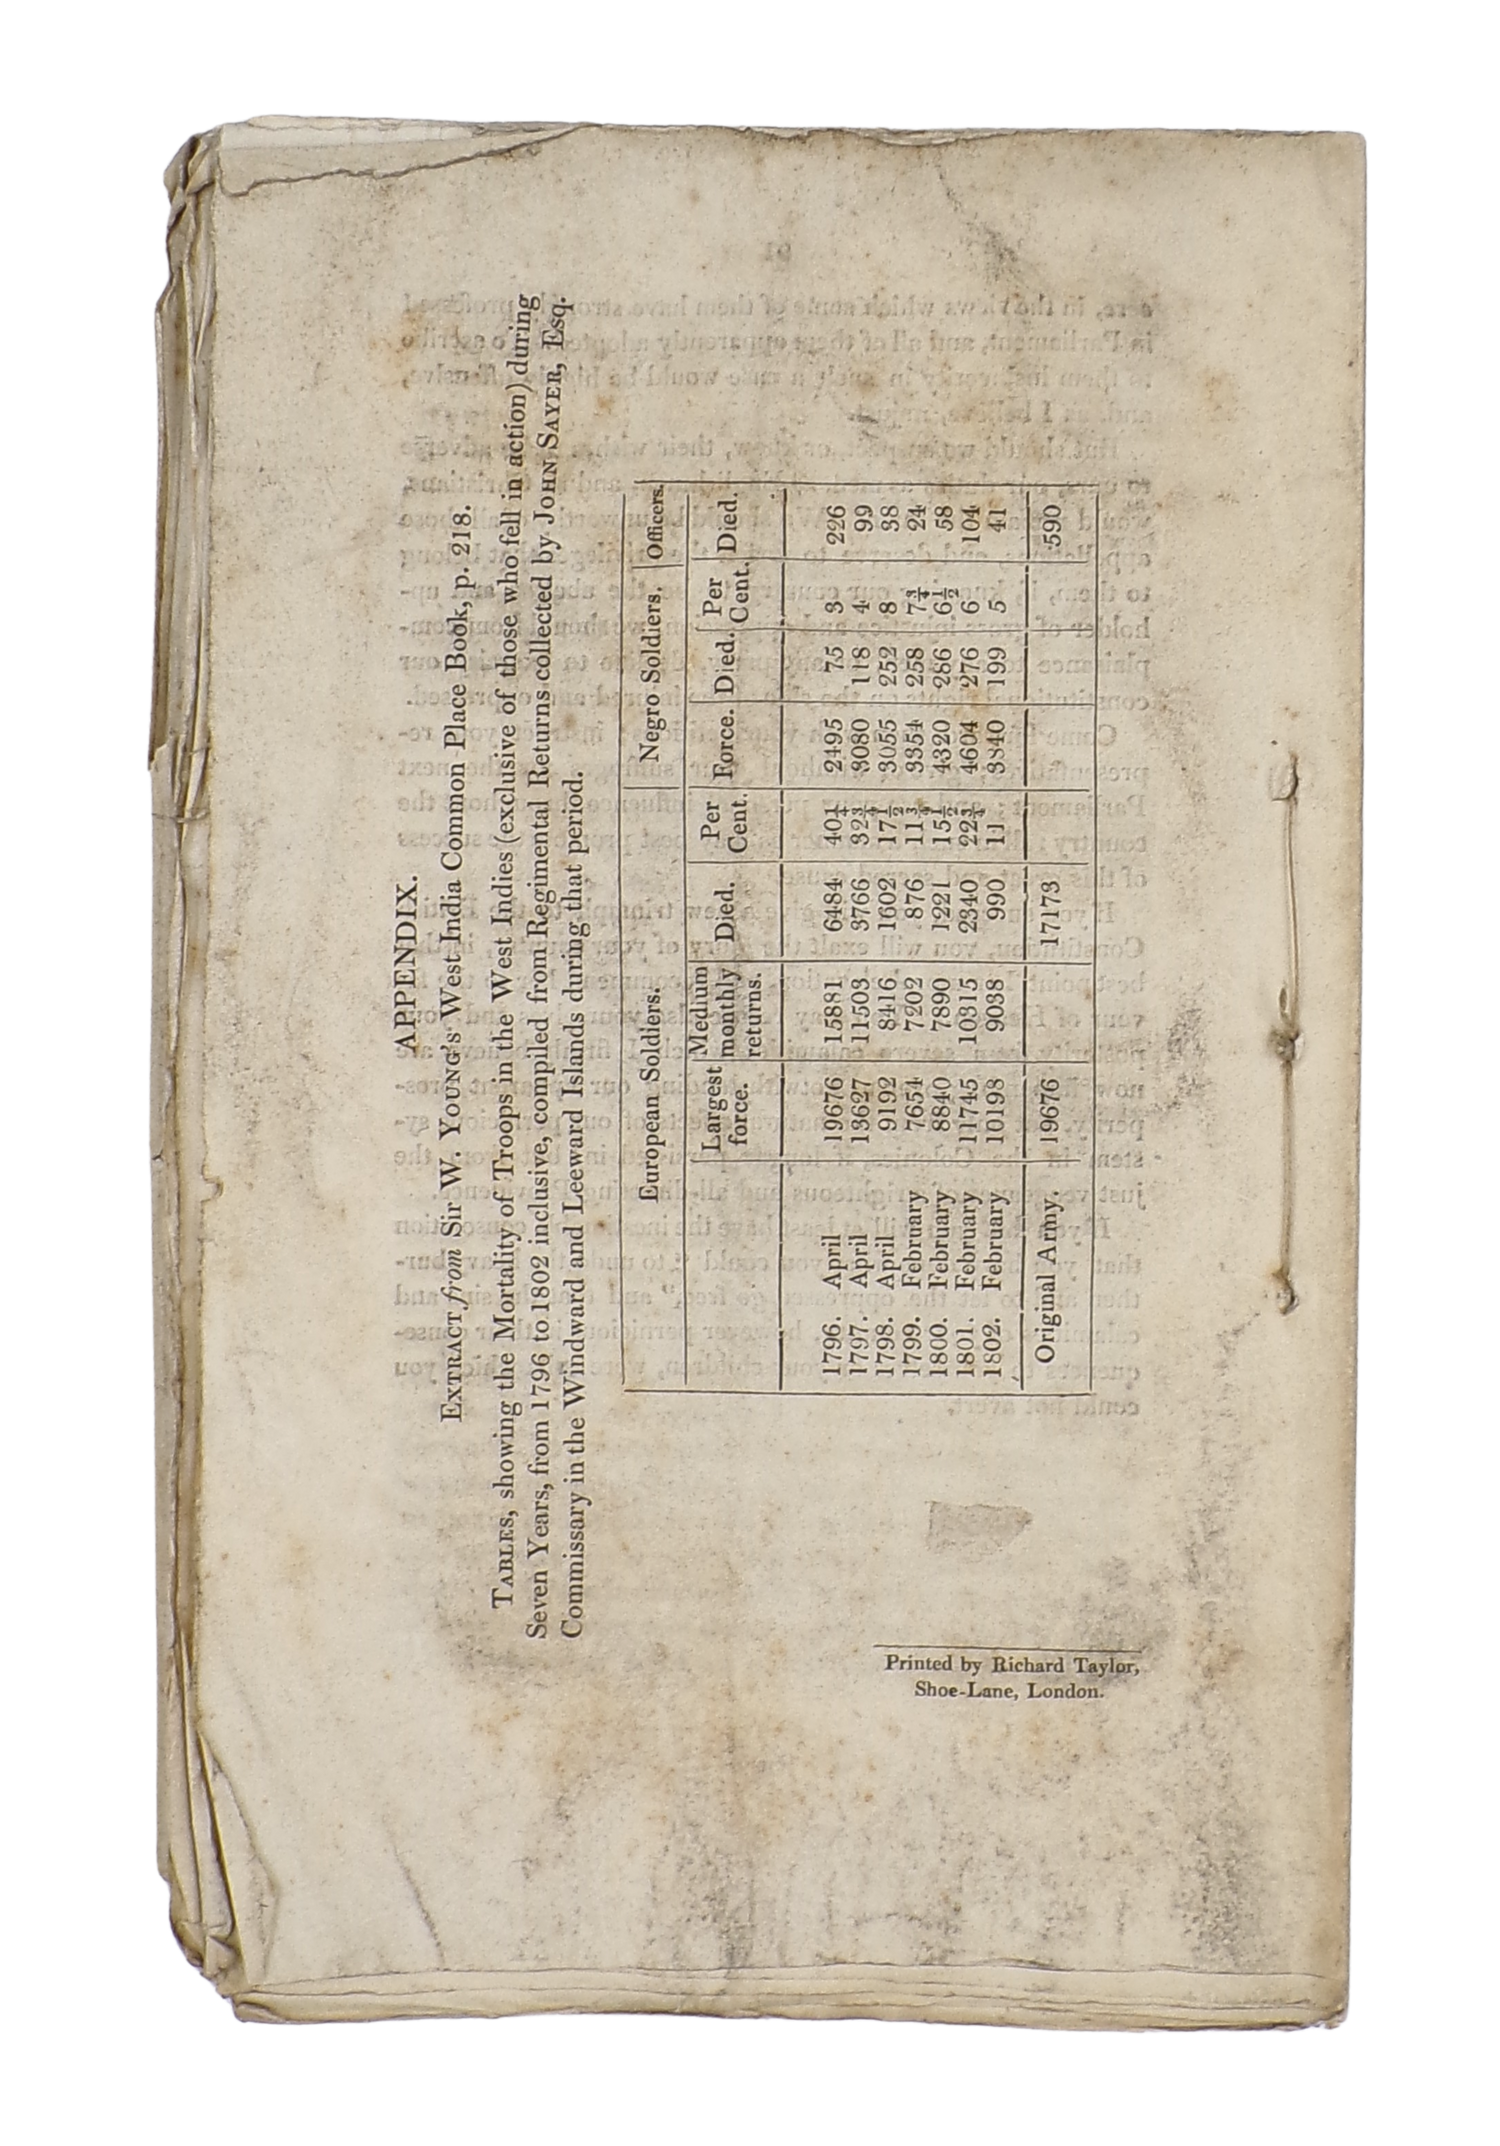 APPENDIX.
EXTRACT from Sir W. YOUNG's West India Common Place Book, p. 218.
TABLES, showing the Mortality of Troops in the West Indies (exclusive of those who fell in action) during
Seven Years, from 1796 to 1802 inclusive, compiled from Regimental Returns collected by JOHN SAYER, Esq.
Commissary in the Windward and Leeward Islands during that period.
European Soldiers. Negro Soldiers. Officers.
Largest force. Medium monthly returns. Died. Per Cent. Force. Died. Per Cent. Died.
1796. April 19676 15881 6484 40¼ 2495 75 3 226
1797. April 13627 11503 3766 32¾ 3080 118 4 99
1798. April 9192 8416 1602 17½ 3055 252 8 38
1799. February 7654 7202 876 11¾ 3354 258 7¾ 24
1800. February 8840 7890 1221 15½ 4320 286 6½ 58
1801. February 11745 10315 2340 22¾ 4604 276 6 104
1802. February 10198 9038 990 11 3840 199 5 41
Original Army. 19676 17173 590
Printed by Richard Taylor,
Shoe-Lane, London.